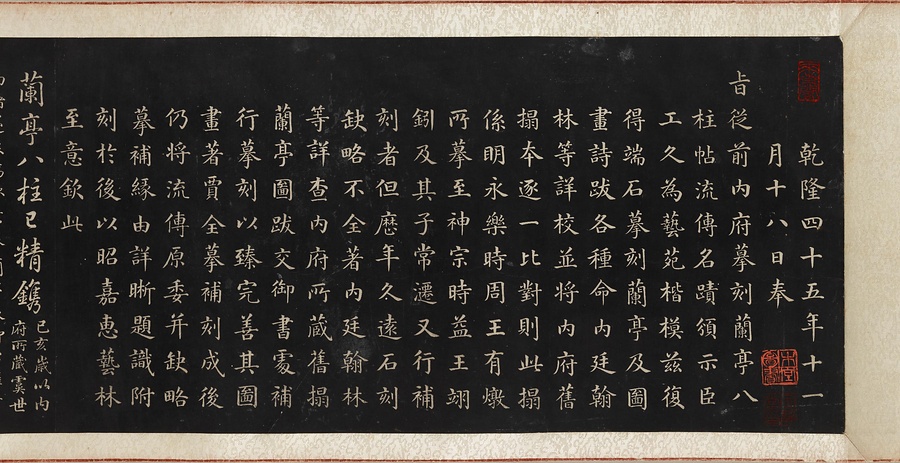 乾隆四十五年十一
月十八日奉
旨從前內府摹刻蘭亭八
柱帖流傳名蹟頒示臣
工久為藝苑楷模茲復
得端石摹刻蘭亭及圖
畫詩跋各種命內廷翰
林等詳校並將內府舊
搨本逐一比對則此搨
係明永樂時周王有燉
所摹至神宗時益王翊
鈏及其子常𣳾又行補
刻者但歷年久遠石刻
缺略不全著內廷翰林
等詳查內府所藏舊搨
蘭亭圖跋交御書處補
行摹刻以臻完善其圖
畫著賈全摹補刻成後
仍將流傳原委并缺略
摹補緣由詳晰題識附
刻於後以昭嘉惠藝林
至意欽此
蘭亭八柱已精鐫 己亥歲以內
府所藏虞世